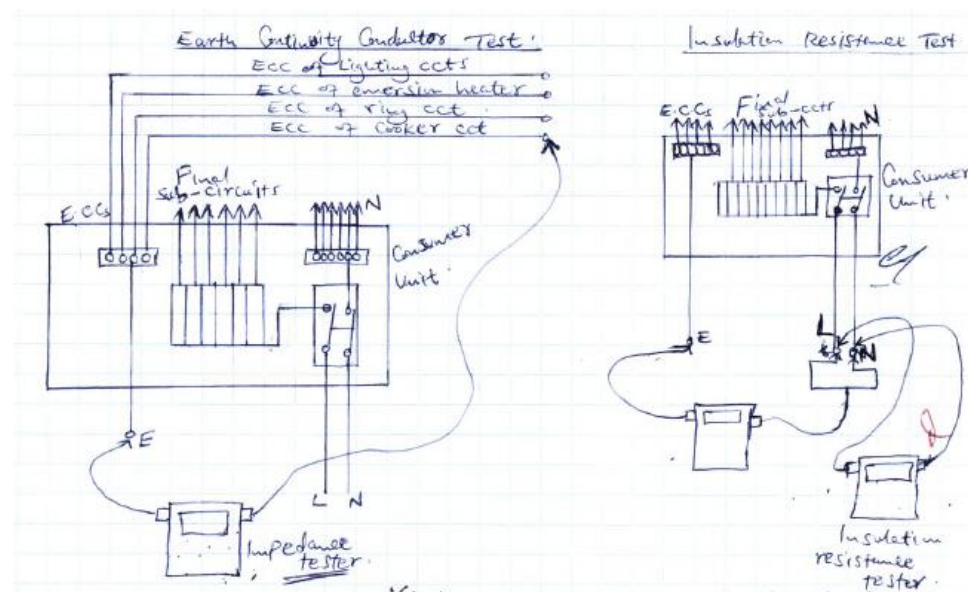 Earth Continuity Conductor Test.
ECC of Lighting ccts
ECC of emersion heater
ECC of ring cct.
ECC of Cooker cct
Final
Sub-circuits
E.CCs
N
Consumer
Unit.
E
L N
Impedance
tester.
Insulation Resistance Test
E.C.Cs
Final
sub-ccts
N
Consumer
Unit.
E
L
N
Insulation
resistance
tester.